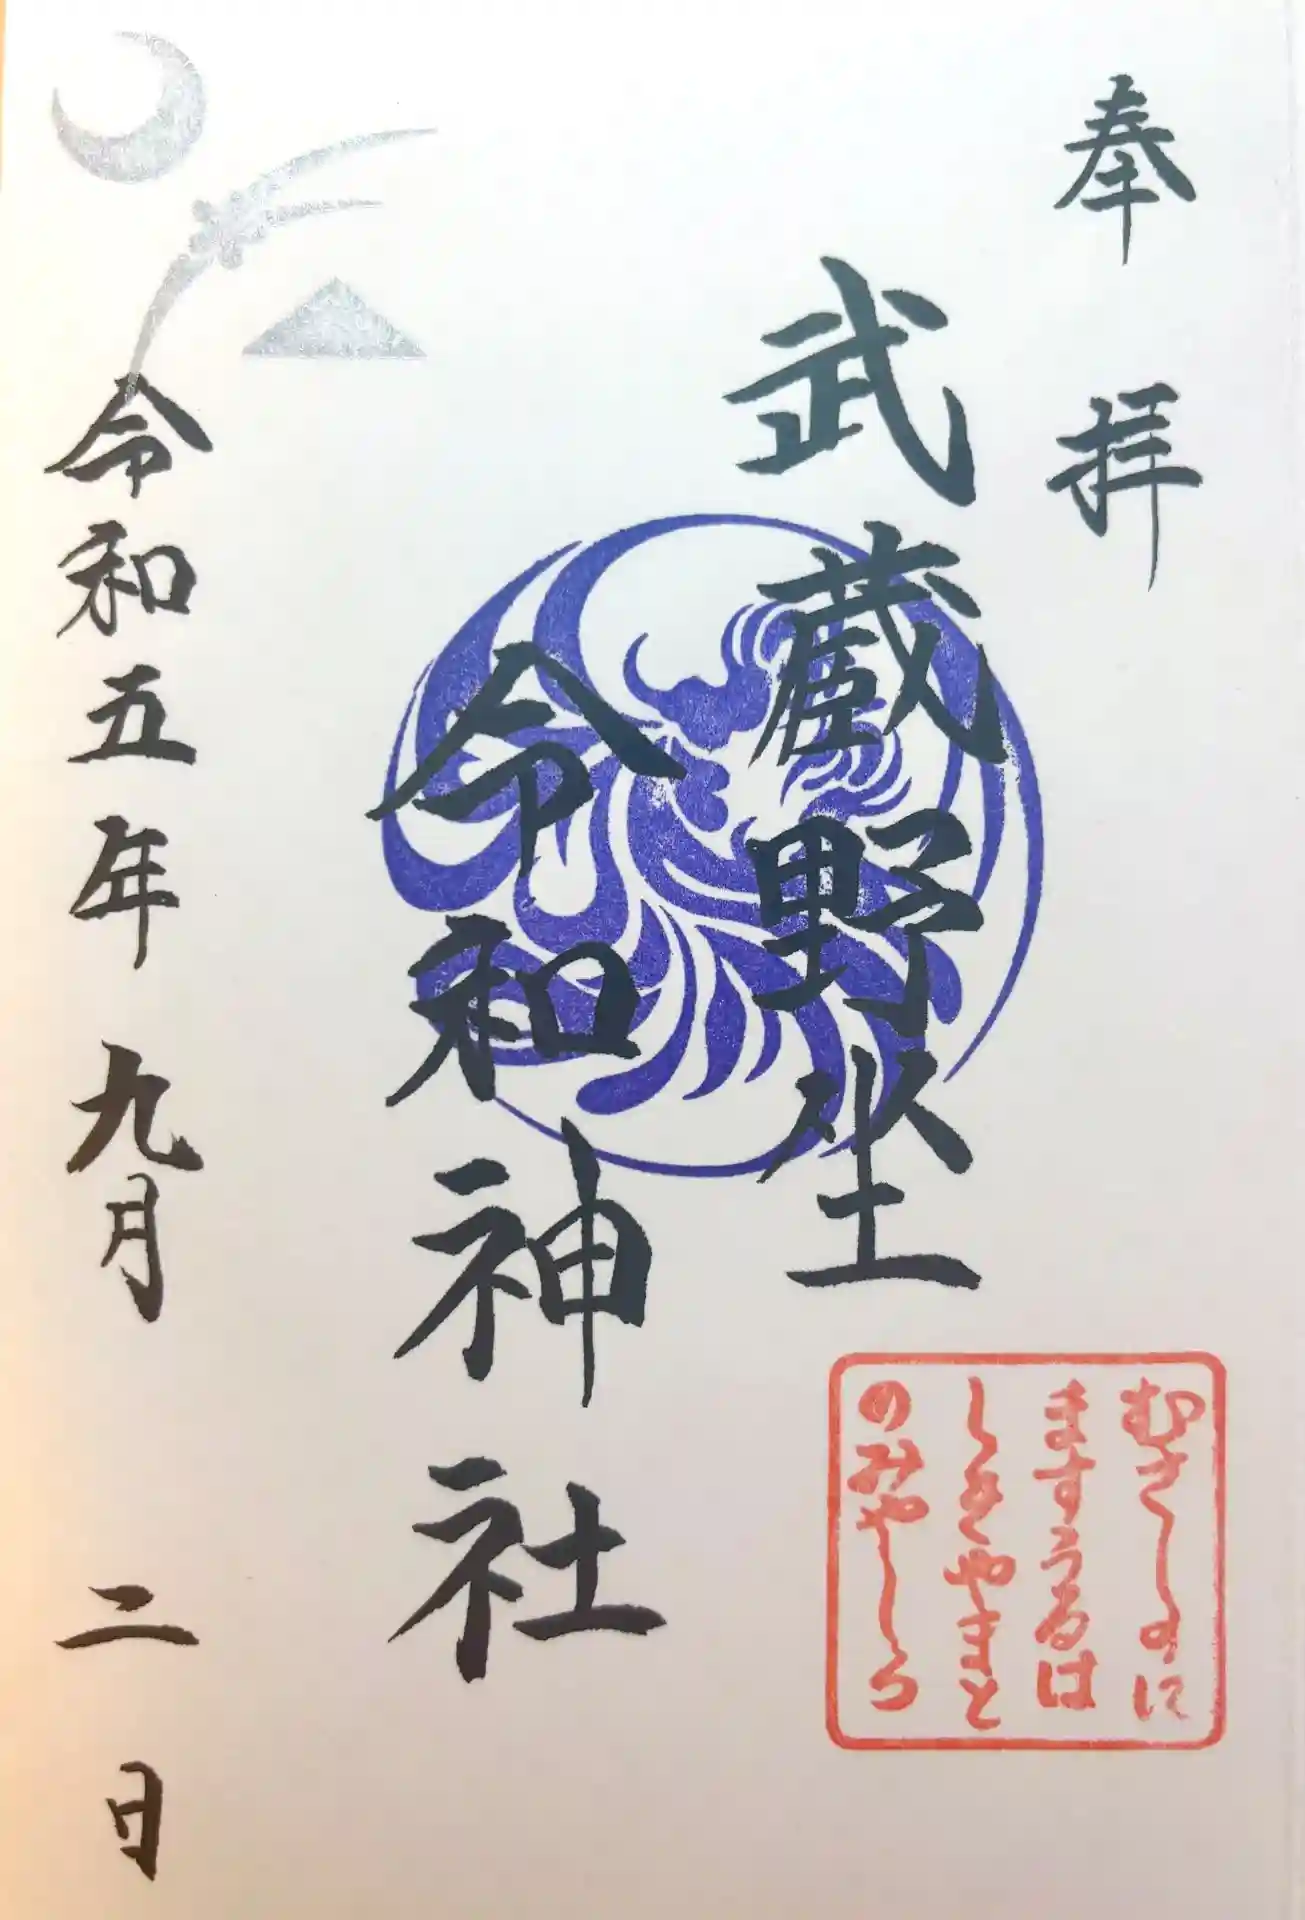 奉拝
武蔵野坐
令和神社
令和五年九月二日
むさしのに
ますうるは
しきやまと
のみやしろ